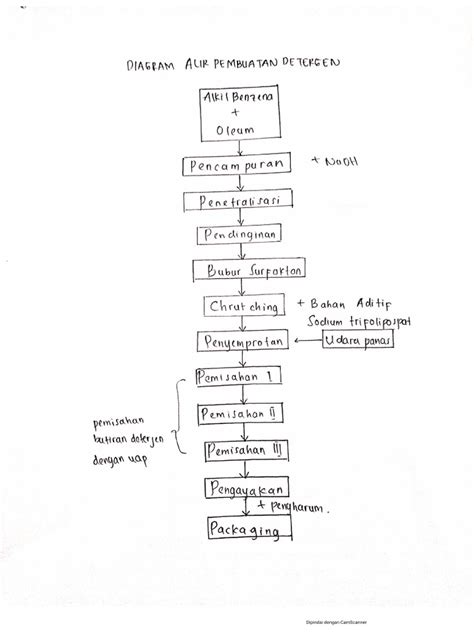 DIAGRAM ALIR PEMBUATAN DETERGEN
Alkil Benzena
+
Oleum
Pencampuran + NaOH
Penetralisasi
Pendinginan
Bubur Surfaktan
Chrutching + Bahan Aditif
Sodium tripolipospat
Penyemprotan Udara panas
Pemisahan I
Pemisahan II
Pemisahan III
pemisahan
butiran deterjen
dengan uap
Pengayakan
+ pengharum.
Packaging
Dipindai dengan CamScanner